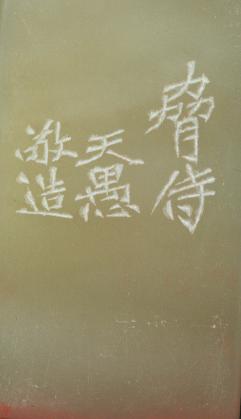 脅侍
天愚
敬造